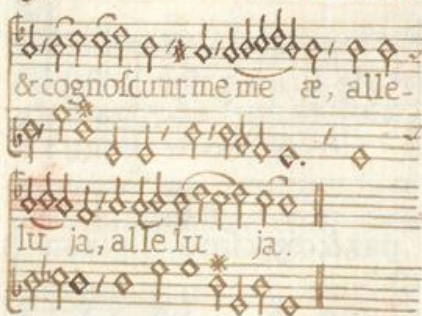 & cognoſcunt me me æ, alle-
lu ja, alle lu ja.